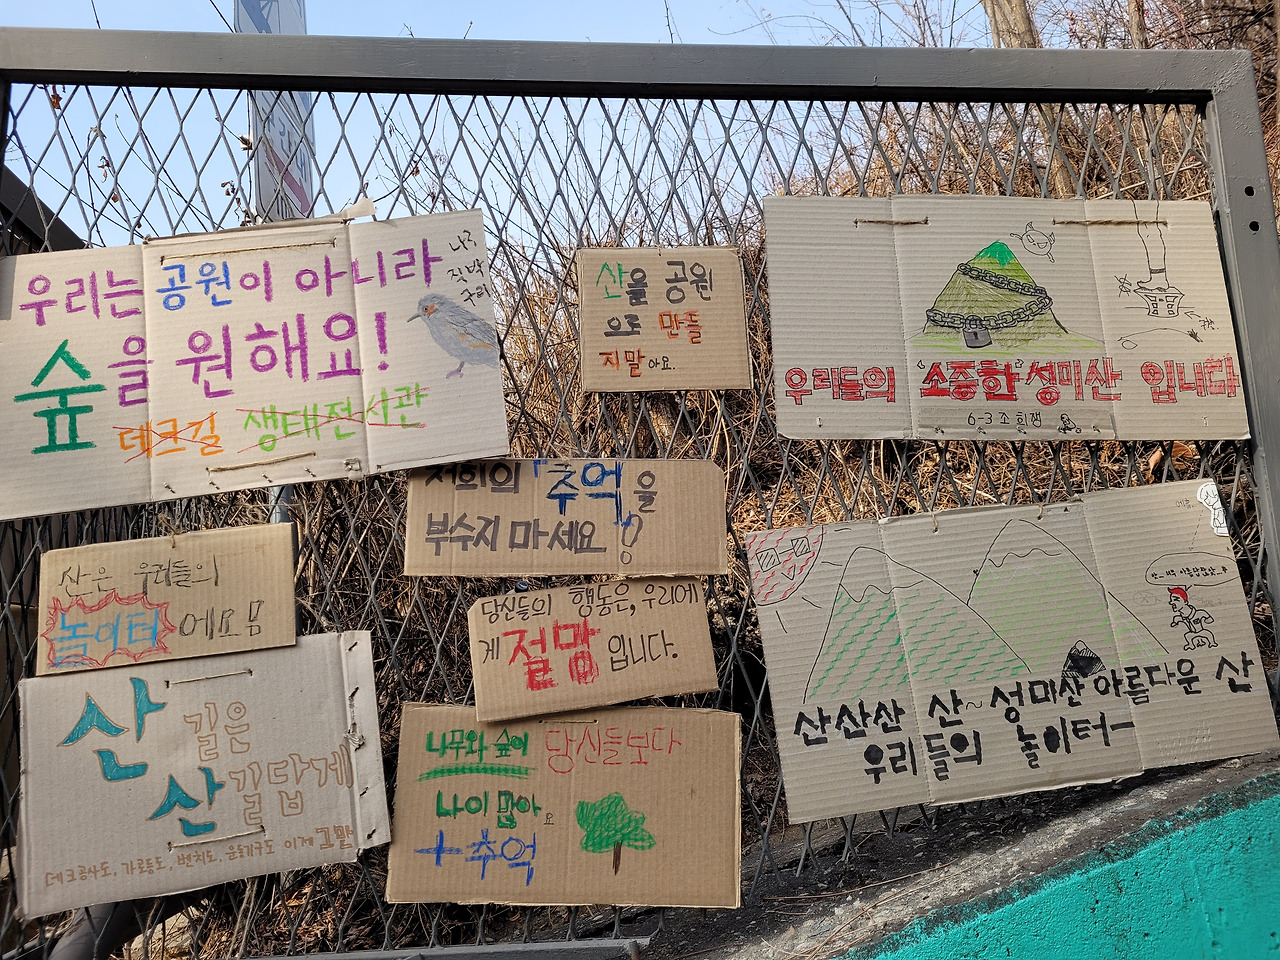 우리는 공원이 아니라
숲을 원해요!
데크길 생태전시관
나,
직박
구리
산을 공원
으로 만들
지말아요.
우리들의 "소중한" 성미산 입니다
6-3 조희쟁
저희의 「추억을
부수지 마세요!
산은 우리들의
놀이터에요
당신들의 행동은, 우리에
게 절망입니다.
산길은
산길답게
데크공사도, 가로등도, 벤치도, 운동기구도 이제 그만
나무와 숲이 당신들보다
나이 많아요
+추억
산산산 산~ 성미산 아름다운 산
우리들의 놀이터ㅡ